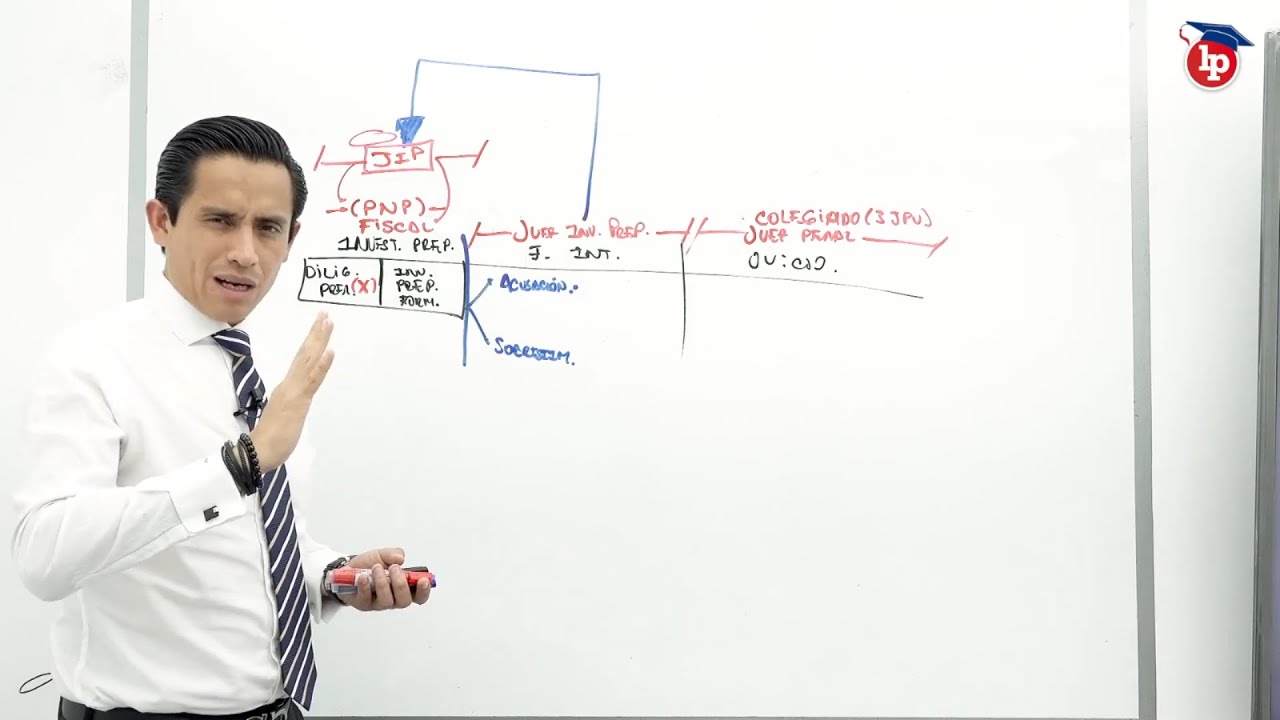 lp
JIP
(PNP)
FISCAL
INVEST. PREP.
DILIG.
PREL. (X)
INV.
PREP.
FORM.
JUEZ INV. PREP.
E. INT.
ACUSACIÓN.
SOBRESEIM.
COLEGIADO (3 JPU)
JUEZ PENAL